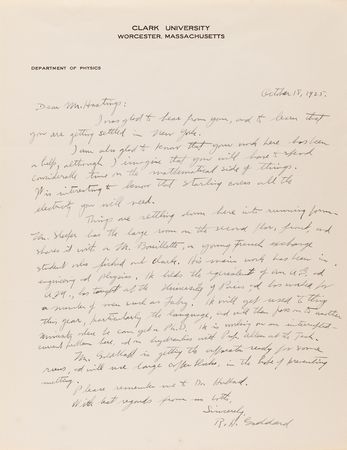 CLARK UNIVERSITY
WORCESTER, MASSACHUSETTS
DEPARTMENT OF PHYSICS
October 18, 1925.
Dear Mr. Hastings:
I was glad to hear from you, and to learn that
you are getting settled in New York.
I am also glad to know that your work here has been
a help, although I imagine that you will have to spend
considerable time on the mathematical side of things.
It is interesting to know that starling covers all the
electricity you will need.
Things are settling down here into running form.
Mr. has the large room on the second floor, and
shares it with a Mr. , a young French exchange
student who picked out Clark. His main work has been in
engineering physics. He holds the equivalent of an A.B. and
A.M., has taught at the University of Paris, and has worked for
a number of men such as Fabry. He will get used to things
this year, particularly the language, and will then pass on to another
University where he can get a Ph.D. He is working on an
current problem here, and in hydraulics with Prof. at the Tech.
Mr. is getting the apparatus ready for some
runs, and will use large , in the hope of preventing
melting.
Please remember me to Dr.
With best regards from us both,
Sincerely,
R.H. Goddard